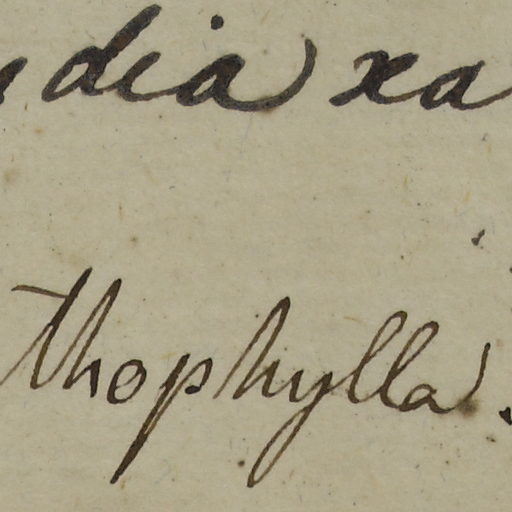 dia xa
thophylla.